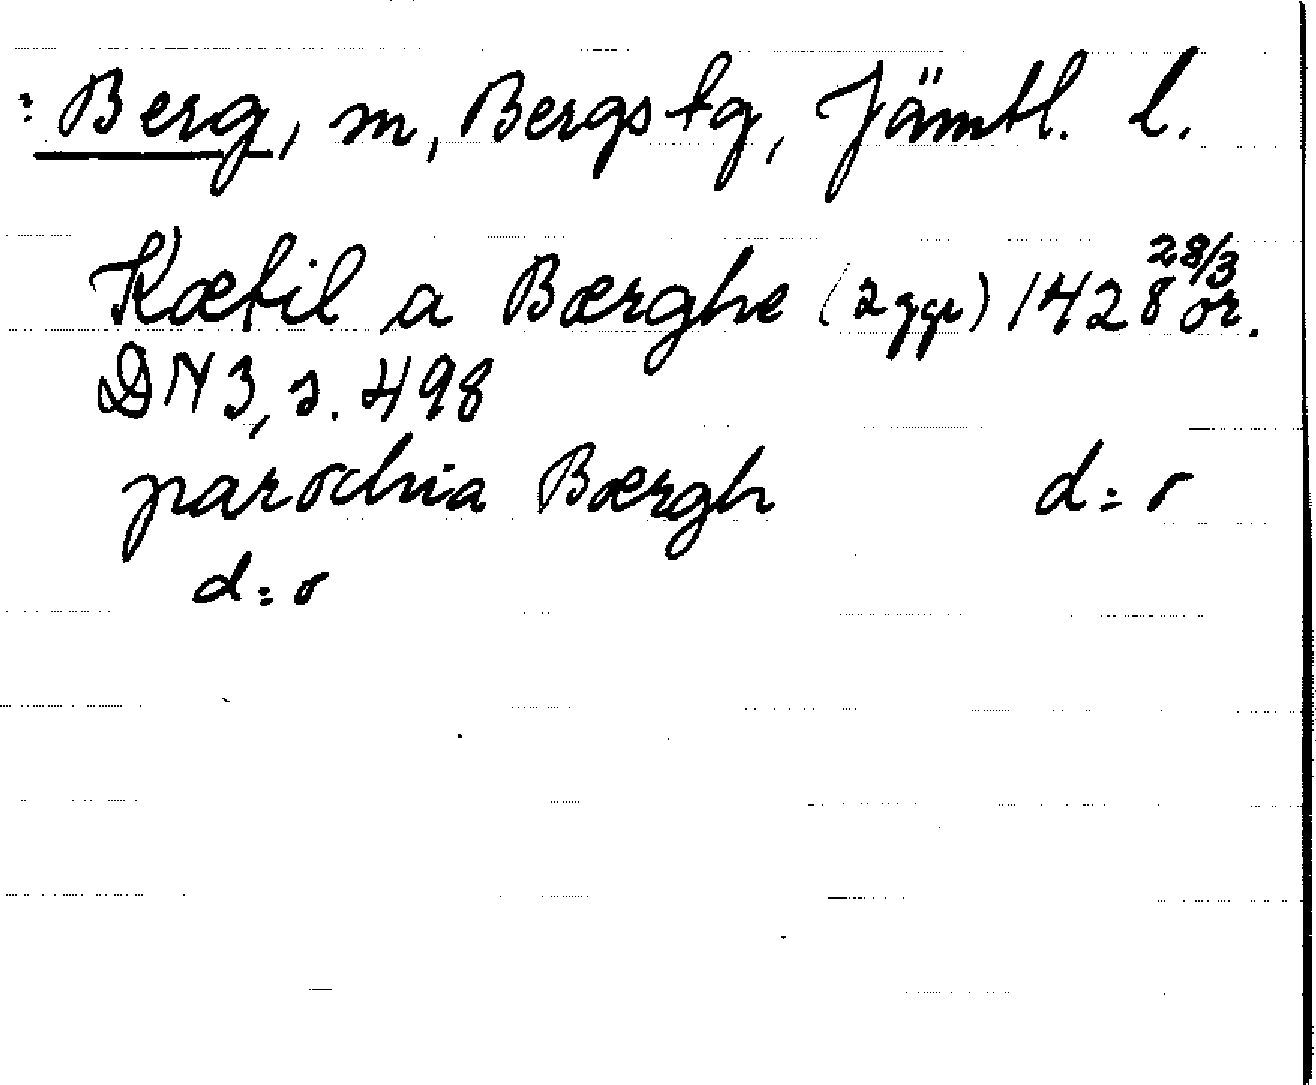 : Berg, m, Bergs tg, Jämtl. l.
Kætil a Bærghe (2 ggr) 1428 28/3 or.
DN 3, s. 498
parochia Bærgh d:o
d:o